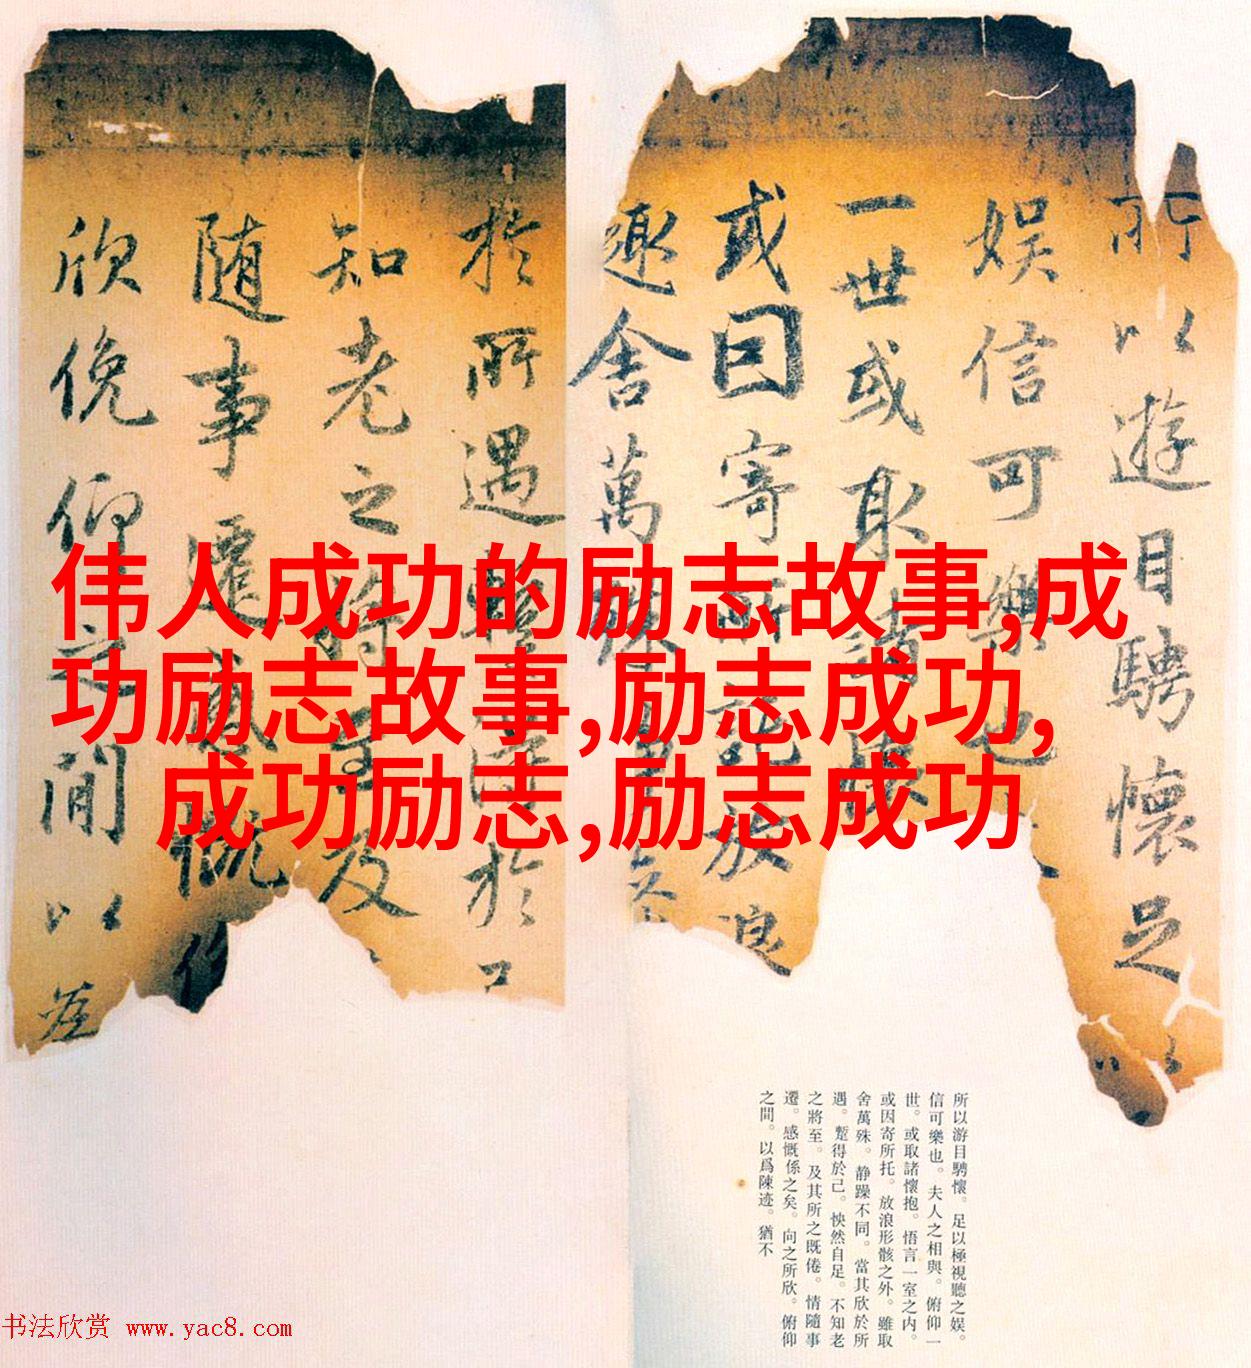 所以遊目騁懷足
娛信可樂也
一世或取諸懷
或因寄所託放浪
趣舍萬殊
於所遇
於己
知老之將至及
随事遷感慨係
欣俛仰之間以為
伟人成功的励志故事,成
功励志故事,励志成功,
成功励志,励志成功
所以游目騁懷。足以極視聽之娱。
信可樂也。夫人之相與。俯仰一
世。或取諸懷抱。悟言一室之内。
或因寄所托。放浪形骸之外。雖取
舍萬殊。静躁不同。當其欣於所
遇。蹔得於己。怏然自足。不知老
之將至。及其所之既倦。情隨事
遷。感慨係之矣。向之所欣。俯仰
之間。以爲陳迹。猶不
书法欣赏 www.yac8.com